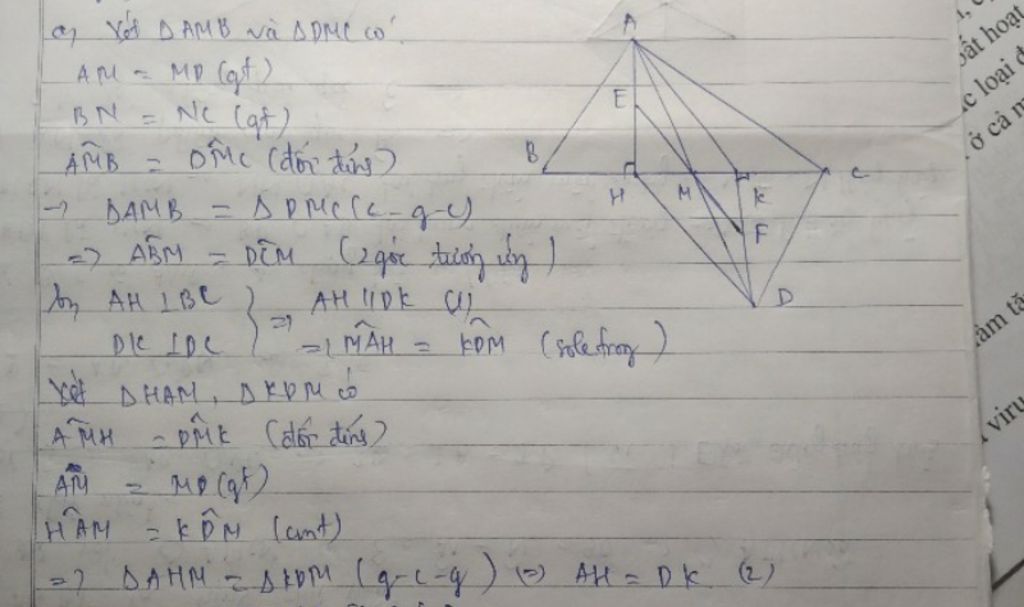 a, Xét ΔAMB và ΔDMC có
AM = MD (gt)
BN = NC (gt)
AM̂B = DM̂C (đối đỉnh)
→ ΔAMB = ΔDMC (c-g-c)
=> AB̂M = DĈM (2 góc tương ứng)
b, AH ⊥ BC
DK ⊥ DC } => AH // DK (1)
=> MÂH = KD̂M (sole trong)
Xét ΔHAM, ΔKDM có
AM̂H = DM̂K (đối đỉnh)
AM = MD (gt)
HÂM = KD̂M (cmt)
=> ΔAHM = ΔKDM (g-c-g) => AH = DK (2)
A
E
B
H
M
K
C
F
D
oắt hoạt
c loại đ
ở cả m
àm tă
viru